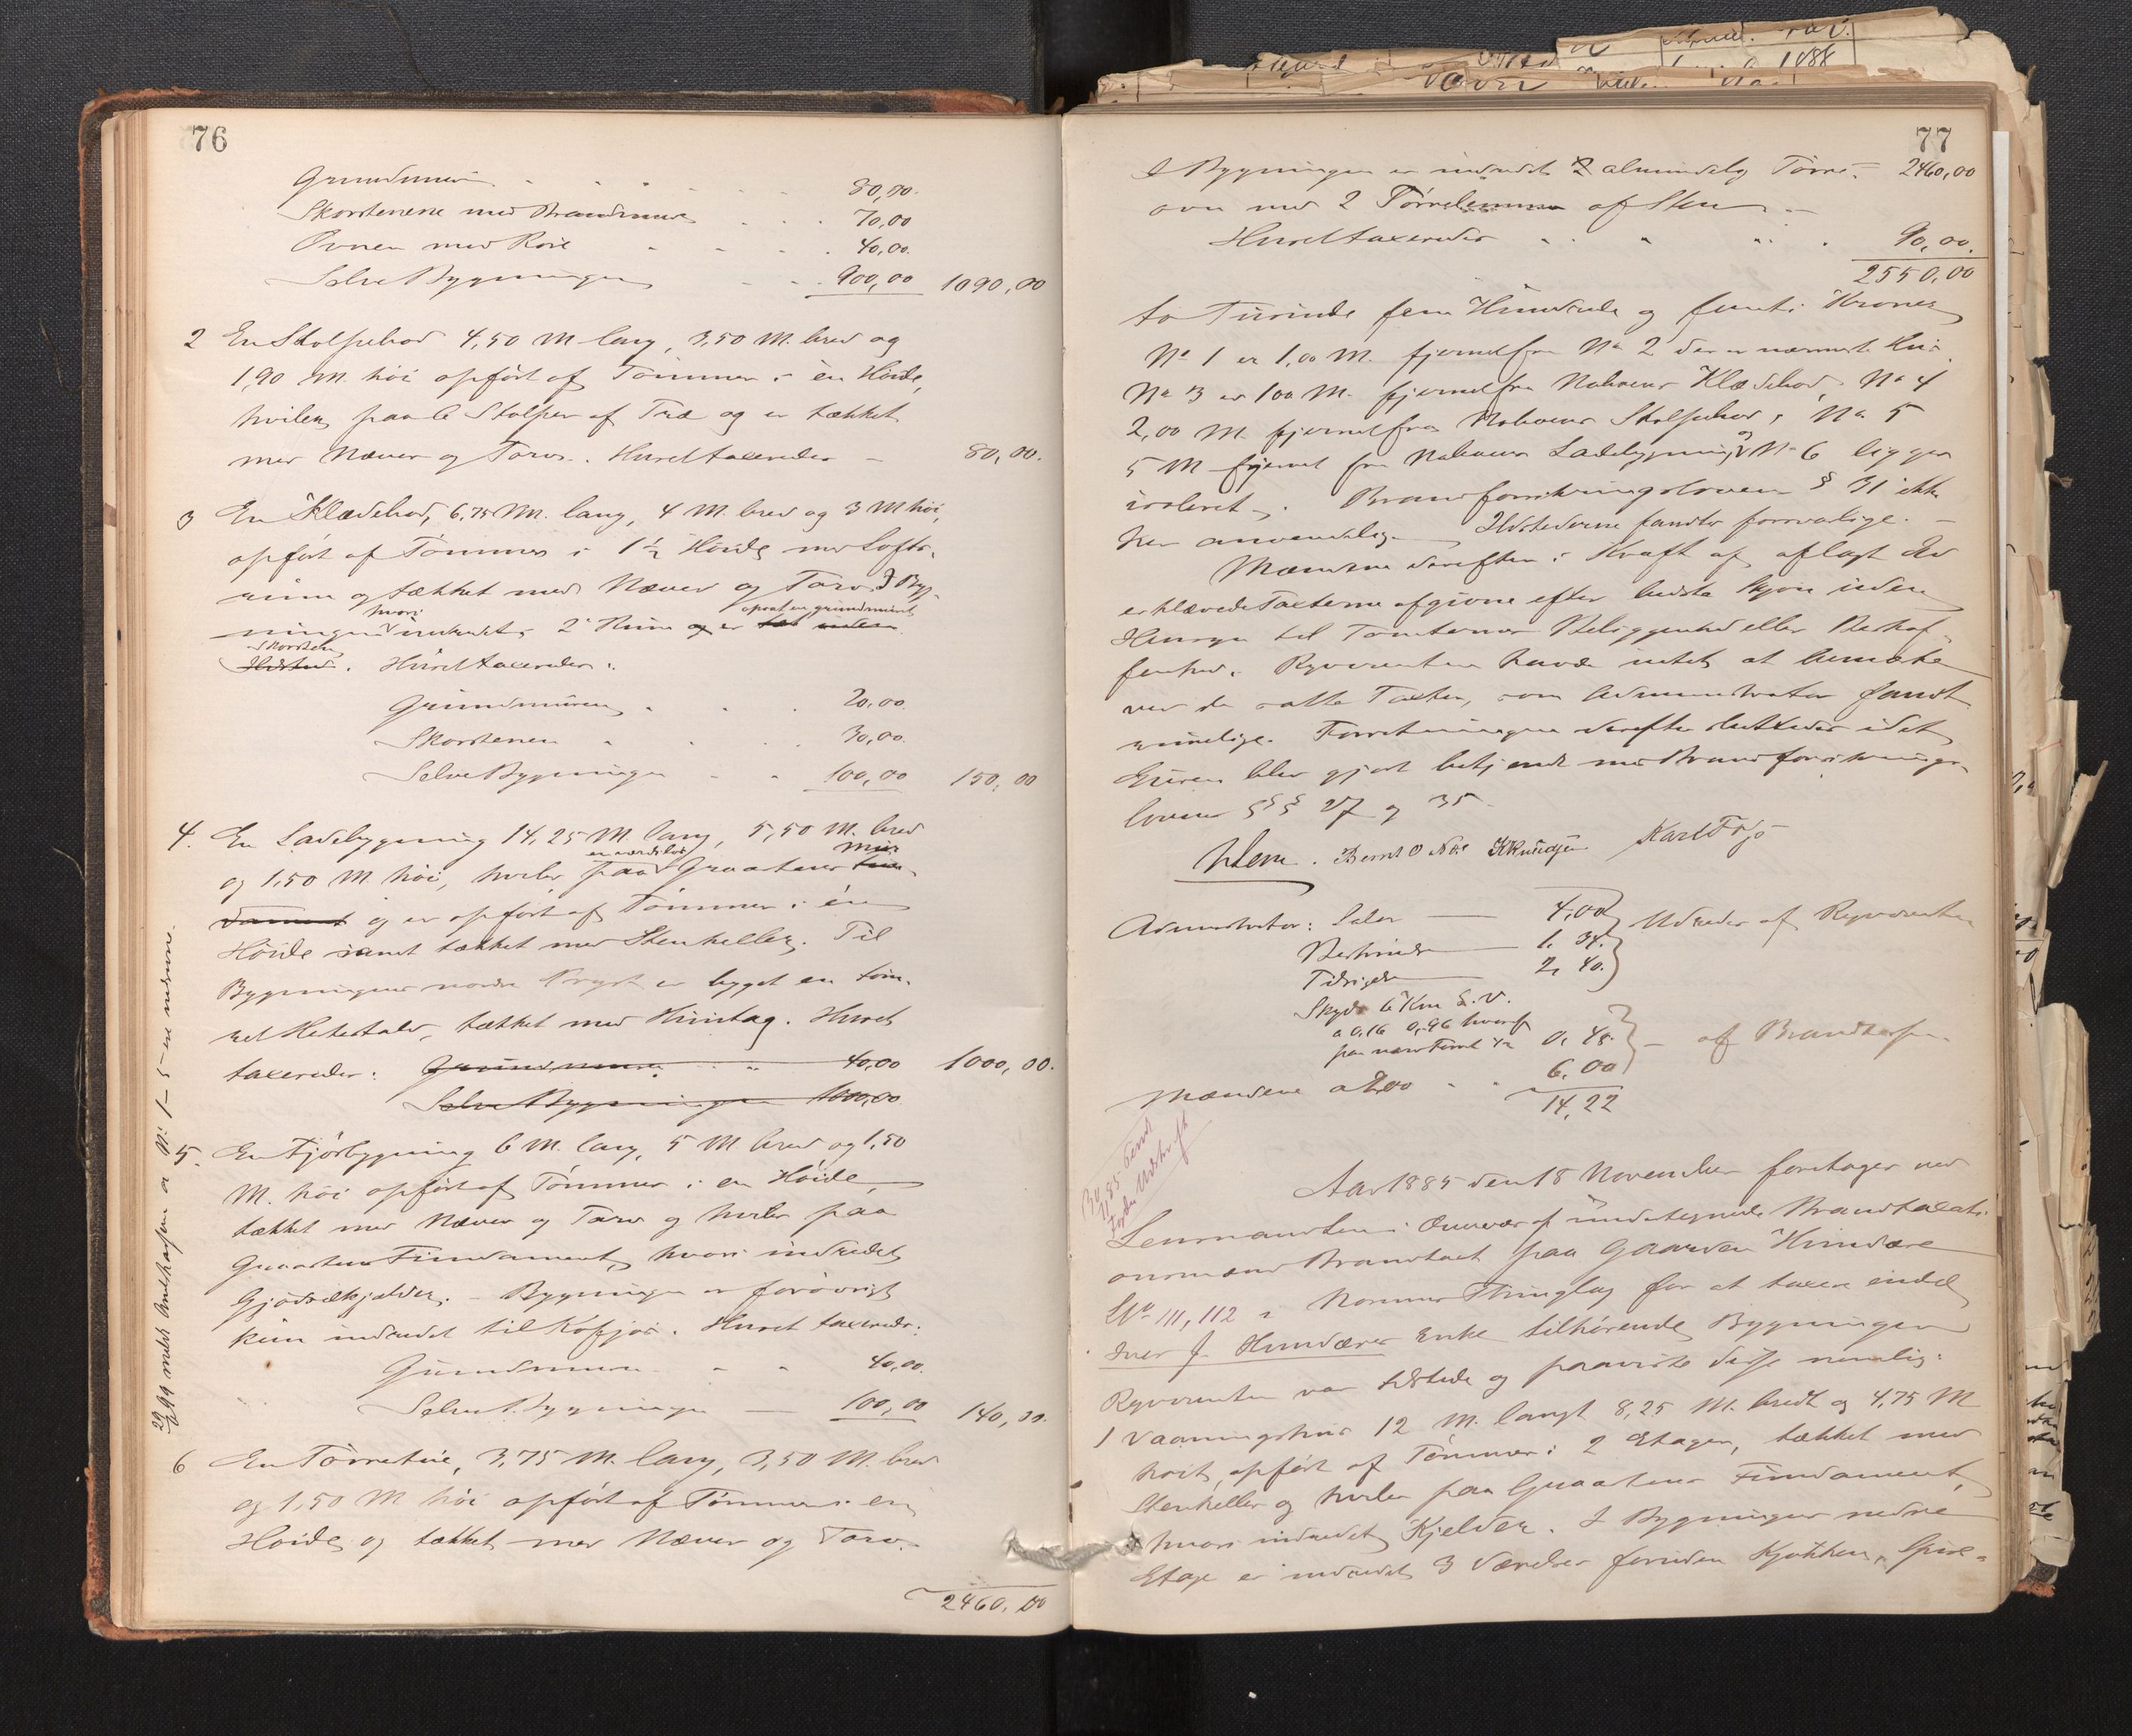 76
Grundmuren 80,00.
Skorstenene med Brandmure 70,00
Ovnen med Rør 40,00.
Selve Bygningen 900,00 1090,00
2 En Stolpebod 4,50 M lang, 3,50 M. bred og
1,90 M. høi opført af Tømmer i en Høide,
hviler paa 6 Stolper af Træ og er tækket
med Næver og Torv. Huset taxeredes - 80,00.
3 En Klædebod, 6,75 M. lang, 4 M. bred og 3 M høi,
opført af Tømmer i 1½ Høide med Lofts-
rum og tækket med Næver og Torv. I Byg-
ningen hvori indredet 2 Rum og er opsat en grundmuret
Skorsten Ildsted. Huset taxeredes:
Grundmuren 20,00.
Skorstenen 30,00.
Selve Bygningen 100,00 150,00
4. En Ladebygning 14,25 M. lang, 5,50 M. bred
og 1,50 M. høi, hviler paa Graastens mur
dament og er opført af Tømmer i én
Høide samt tækket med Stenheller. Til
Bygningens nordre Bryst er bygget en tøm-
ret Hestestald, tækket med Huntag. Huset
taxeredes: Grundmuren 40,00 1000,00.
Selve Bygningen 1000,00
5. En Fjøsbygning 6 M. lang, 5 M bred og 1,50
M. høi opført af Tømmer i en Høide,
tækket med Næver og Torv og hviler paa
Graastens Fundament, hvori indredet
Gjødselkjelder. - Bygningen er forøvrigt
kun indredet til Kofjøs. Huset taxeredes:
Grundmuren 40,00.
Selve Bygningen 100,00 140,00.
6 En Tørrestue, 3,75 M. lang, 3,50 M. bred
og 1,50 M høi opført af Tømmer i en
Høide og tækket med Næver og Torv.
2460,00
29/6 99 meldt a No 1-5 -
77
I Bygningen er indredet 2 almindelig Tørre- 2460,00
ovn med 2 Tørrelemme af Sten -
Huset taxeredes 90,00.
2550,00
to Tusinde fem Hundrede og femti Kroner
No 1 er 1,00 M. fjernet fra No 2 der er nærmeste Hus
No 3 er 100 M. fjernet fra Naboens Klædebod, No 4
2,00 M. fjernet fra Naboens Stolpebod, No 5
5 M fjernet fra Naboens Ladebygning og No 6 ligger
isoleret. Brandforsikringslovens § 31 ikke
her anvendelig. Ildstederne fandtes forsvarlige. -
Mændene derefter i Kraft af aflagt Ed
erklærede Taxterne afgivne efter bedste Skjøn uden
Hensyn til Tomternes Beliggenhed eller Beskaf-
fenhed. Rekvirenten havde intet at bemærke
ved de satte Taxter, som Administrator fandt
rimelige. Forretningen derefter sluttedes idet
Eieren blev gjort bekjendt med Brandforsikrings-
lovens §§§ 27 og 35.
Bernt O Næs K Knudsen Karl
Administrator: Salær — 4,00 Udredes af Rekvirenten
1, 34.
2, 40.
Skyds 6 Km
a 0,16 0,96 hvoraf
0, 48. - af Brandkassen.
Mændene a 2,00 6,00
14,22
30/11 85 sendt
Udskrift
Aar 1885 den 18 November foretoges ved
Lensmanden i Overvær af undertegnede Brandtaxati-
onsmænd Brandtaxt paa Gaarden Hundere
No 111, 112 i Thinglag for at taxere endel
Iver J. Hunderes Enke tilhørende Bygninger
Rekvirenten var tilstede og paaviste disse nemlig:
1 Vaaningshus 12 M. langt 8,25 M. bredt og 4,75 M
høit, opført af Tømmer i 2 Etager, tækket med
Stenheller og hviler paa Graastens Fundament,
hvori indredet Kjelder. I Bygningens nedre
Etage er indredet 3 Værelser foruden Kjøkken, Spise-
1888